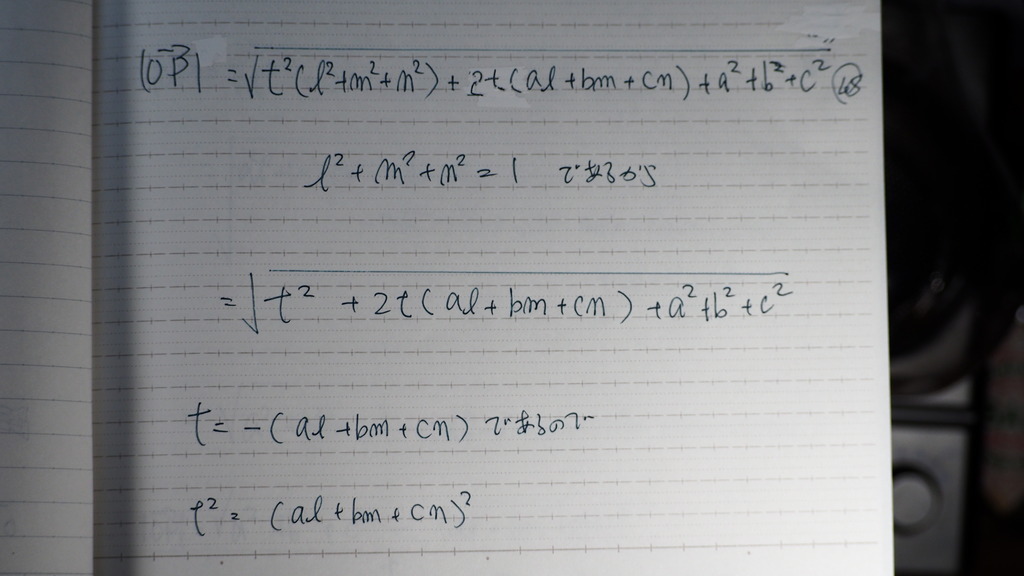 |OP| = √t²(l²+m²+n²) + 2t(al+bm+cn) + a²+b²+c² ㊽
l²+m²+n² = 1 であるから
= √t² + 2t(al+bm+cn) + a²+b²+c²
t = -(al+bm+cn) であるので
t² = (al+bm+cn)²